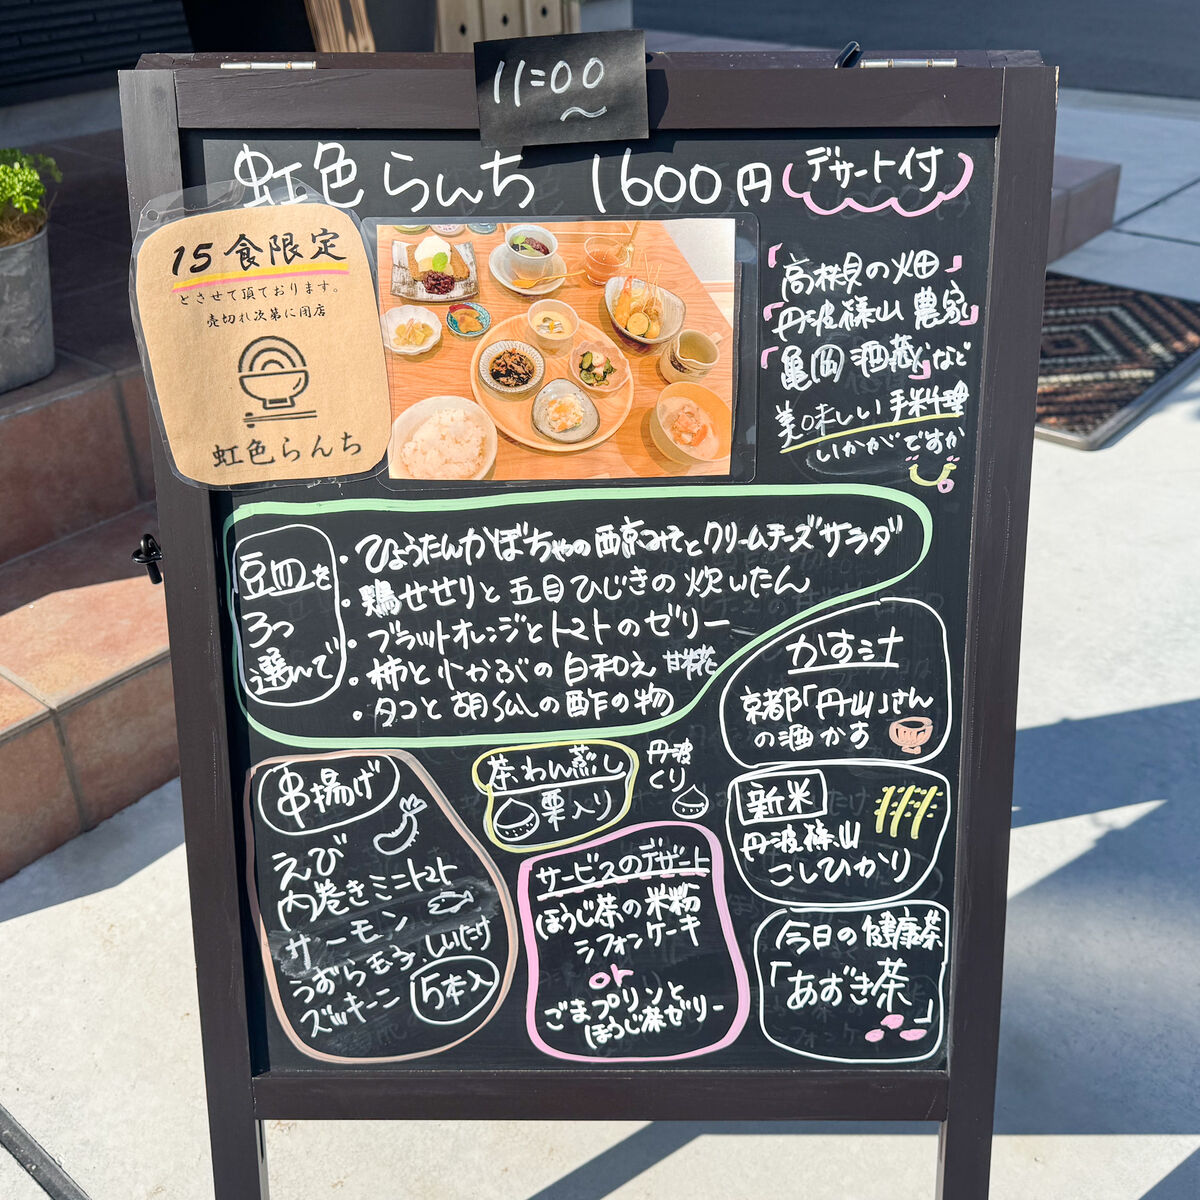 11:00
～
虹色らんち 1600円 デザート付
15食限定
とさせて頂ております。
売切れ次第に閉店
虹色らんち
「高槻の畑」
「丹波篠山 農家」
「亀岡 酒蔵」など
美味しい手料理
いかがですか
豆皿を
3つ
選んで
・ひょうたんかぼちゃの西京みそとクリームチーズサラダ
・鶏せせりと五目ひじきの炊いたん
・ブラットオレンジとトマトのゼリー
・柿と小かぶの白和え 甘糀
・タコと胡瓜の酢の物
かす汁
京都「丹山」さん
の酒かす
串揚げ
えび
肉巻きミニトマト
サーモン
うずら玉子、しいたけ
ズッキーニ 5本入
茶わん蒸し
栗入り
丹波
くり
新米
丹波篠山
こしひかり
サービスのデザート
ほうじ茶の米粉
シフォンケーキ
or
ごまプリンと
ほうじ茶ゼリー
今日の健康茶
「あずき茶」